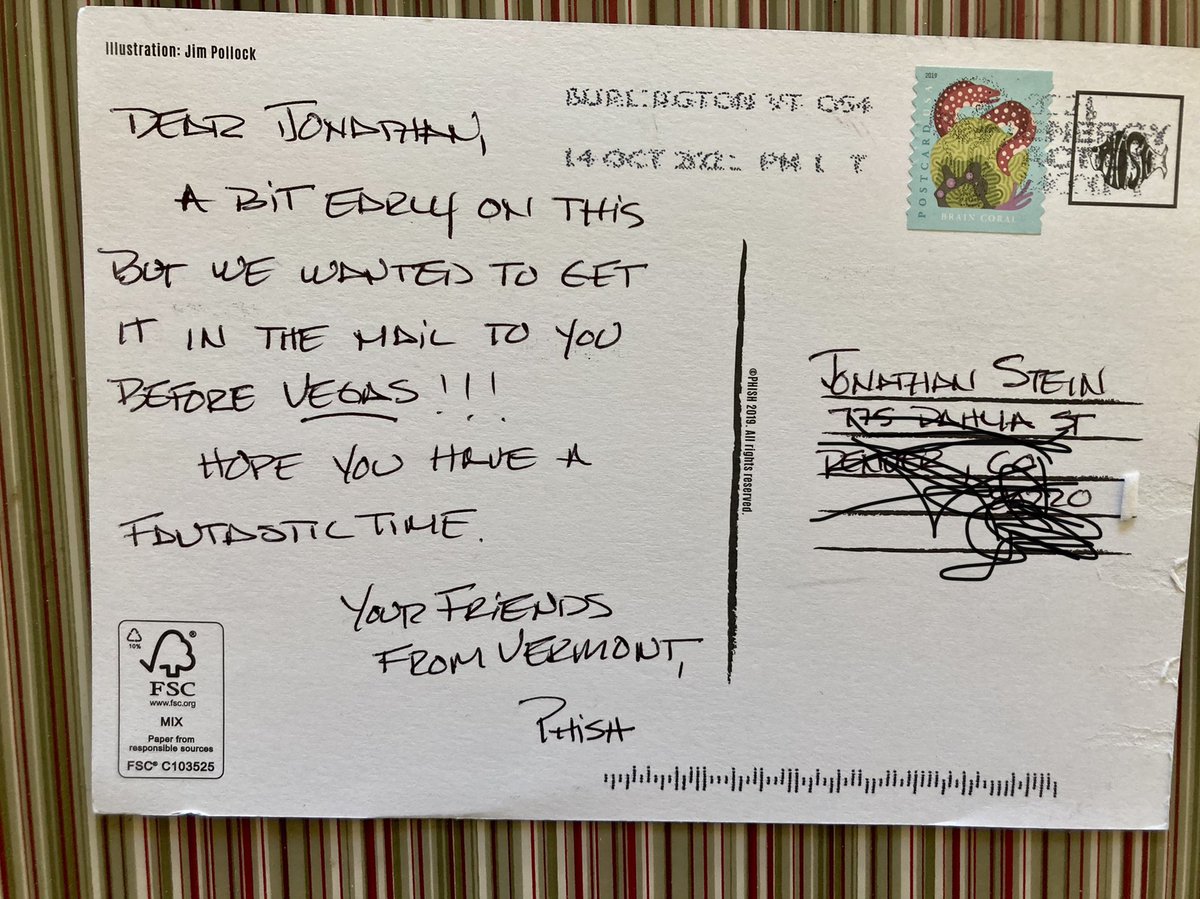 Illustration: Jim Pollock
BURLINGTON VT 054
14 OCT PM 1 T
2019
POSTCARD
BRAIN CORAL
PHISH
DEAR JONATHAN,
A BIT EARLY ON THIS
BUT WE WANTED TO GET
IT IN THE MAIL TO YOU
BEFORE VEGAS!!!
HOPE YOU HAVE A
FANTASTIC TIME.
YOUR FRIENDS
FROM VERMONT,
PHISH
©PHISH 2019. All rights reserved.
JONATHAN STEIN
10%
®
FSC
www.fsc.org
MIX
Paper from
responsible sources
FSC® C103525